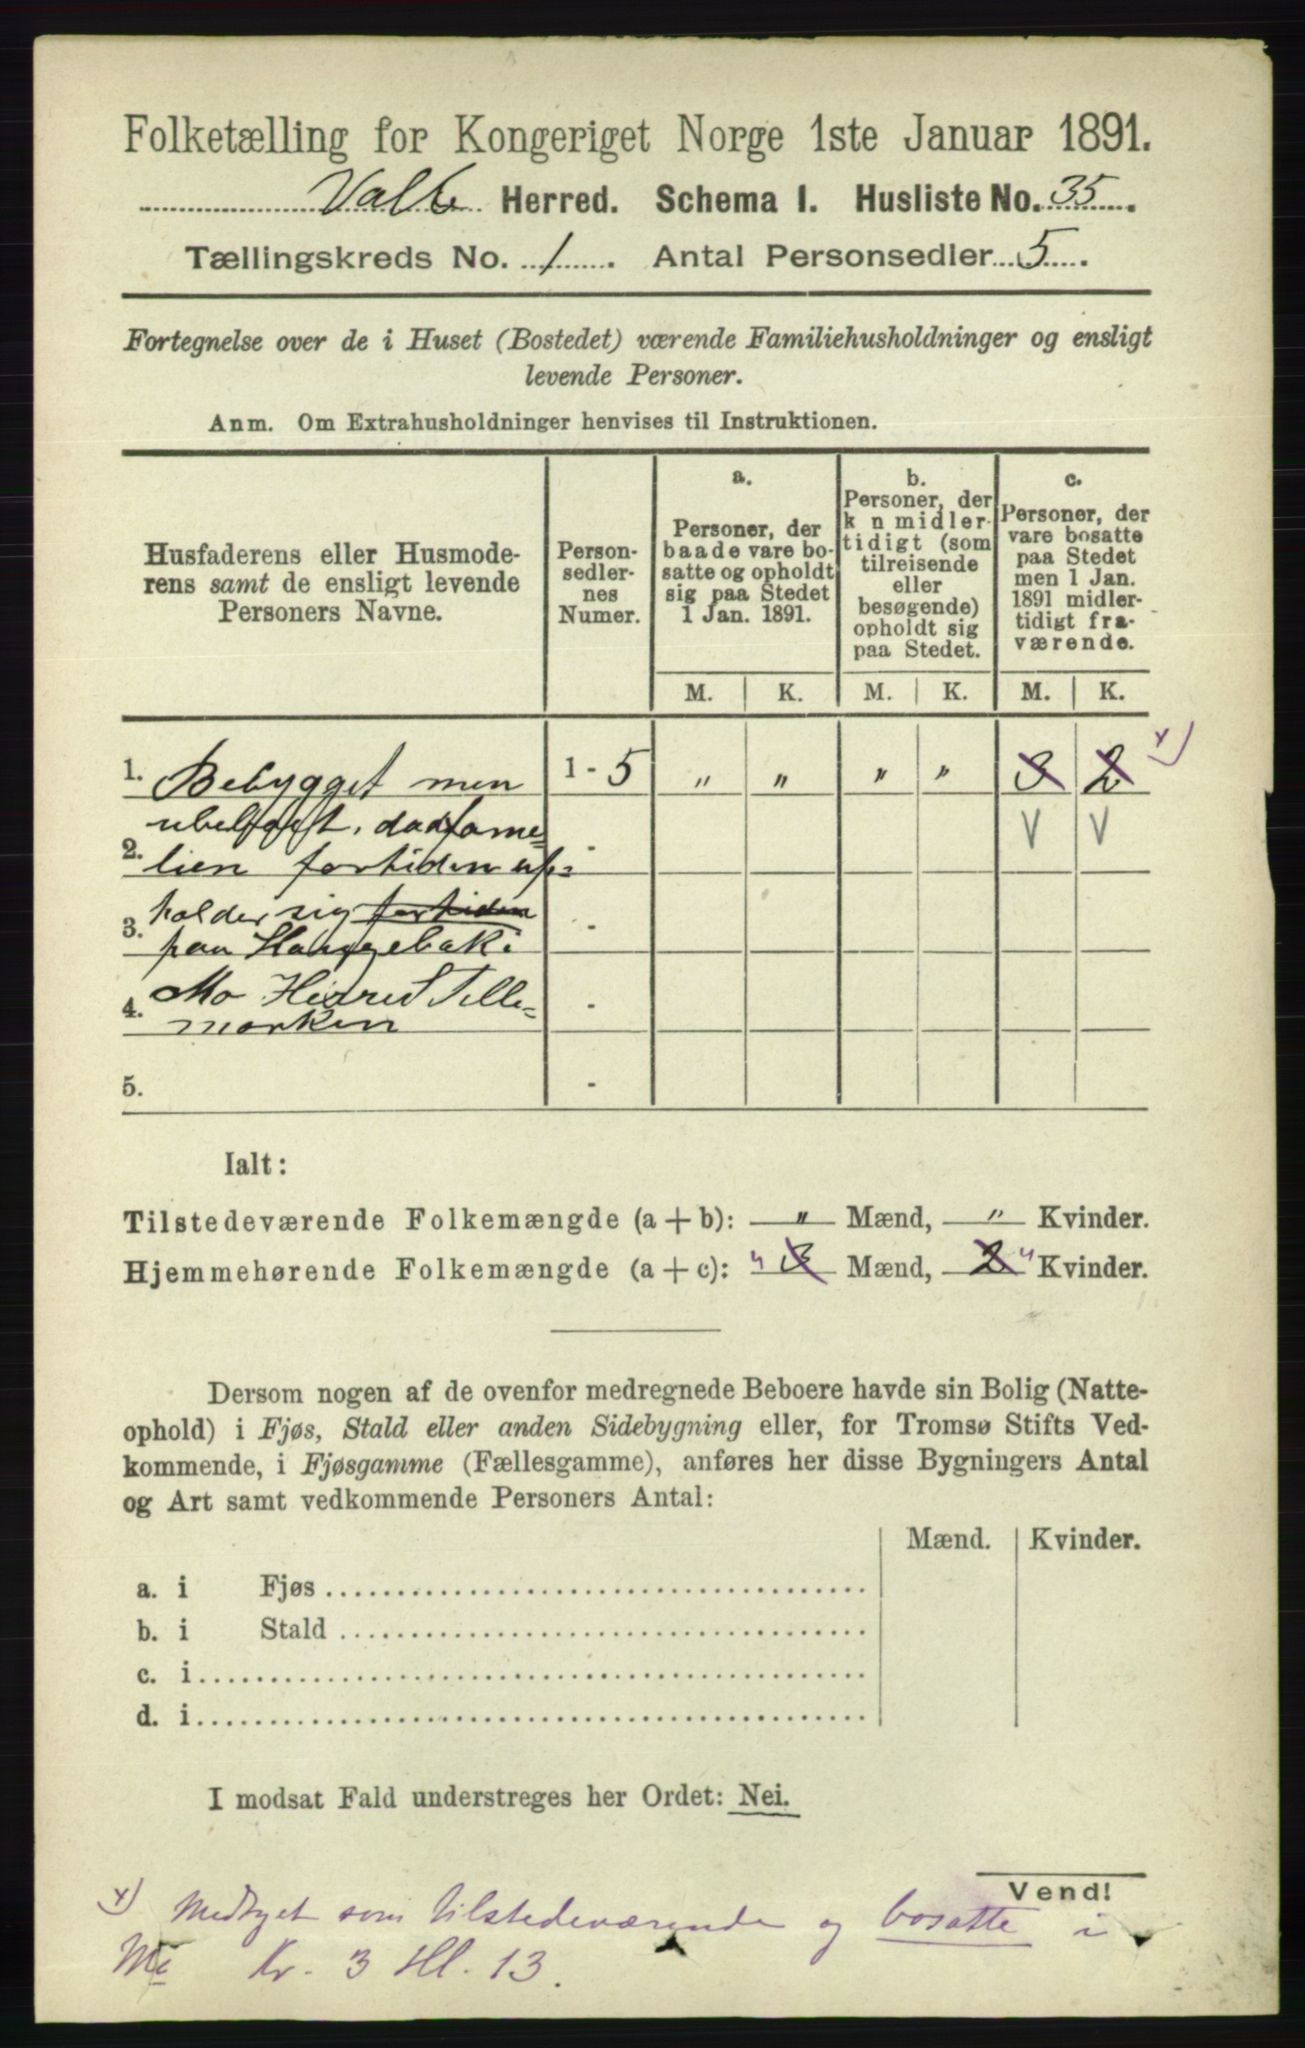 Folketælling for Kongeriget Norge 1ste Januar 1891.
Valle Herred. Schema I. Husliste No. 35.
Tællingskreds No. 1. Antal Personsedler 5.
Fortegnelse over de i Huset (Bostedet) værende Familiehusholdninger og ensligt
levende Personer.
Anm. Om Extrahusholdninger henvises til Instruktionen.
Husfaderens eller Husmode-
rens samt de ensligt levende
Personers Navne.
Person-
sedler-
nes
Numer.
a.
Personer, der
baade vare bo-
satte og opholdt
sig paa Stedet
1 Jan. 1891.
b.
Personer, der
k n midler-
tidigt (som
tilreisende
eller
besøgende)
opholdt sig
paa Stedet.
c.
Personer, der
vare bosatte
paa Stedet
men 1 Jan.
1891 midler-
tidigt fra-
værende.
M. K. M. K. M. K.
1. Bebygget men 1 - 5 " " " " 3 2 x)
ubeboet, da fame= V V
2. lien fortiden op= -
holder sig fortiden
3. paa Haugebak i -
4. Mo Herred Telle= -
marken
5. -
Ialt:
Tilstedeværende Folkemængde (a + b): " Mænd, " Kvinder.
Hjemmehørende Folkemængde (a + c): " 3 Mænd, 2 " Kvinder.
Dersom nogen af de ovenfor medregnede Beboere havde sin Bolig (Natte-
ophold) i Fjøs, Stald eller anden Sidebygning eller, for Tromsø Stifts Ved-
kommende, i Fjøsgamme (Fællesgamme), anføres her disse Bygningers Antal
og Art samt vedkommende Personers Antal:
Mænd. Kvinder.
a. i Fjøs
b. i Stald
c. i
d. i
I modsat Fald understreges her Ordet: Nei.
Vend!
x) Medtaget som tilstedeværende og bosatte i
Mo Kr. 3 Hl. 13.